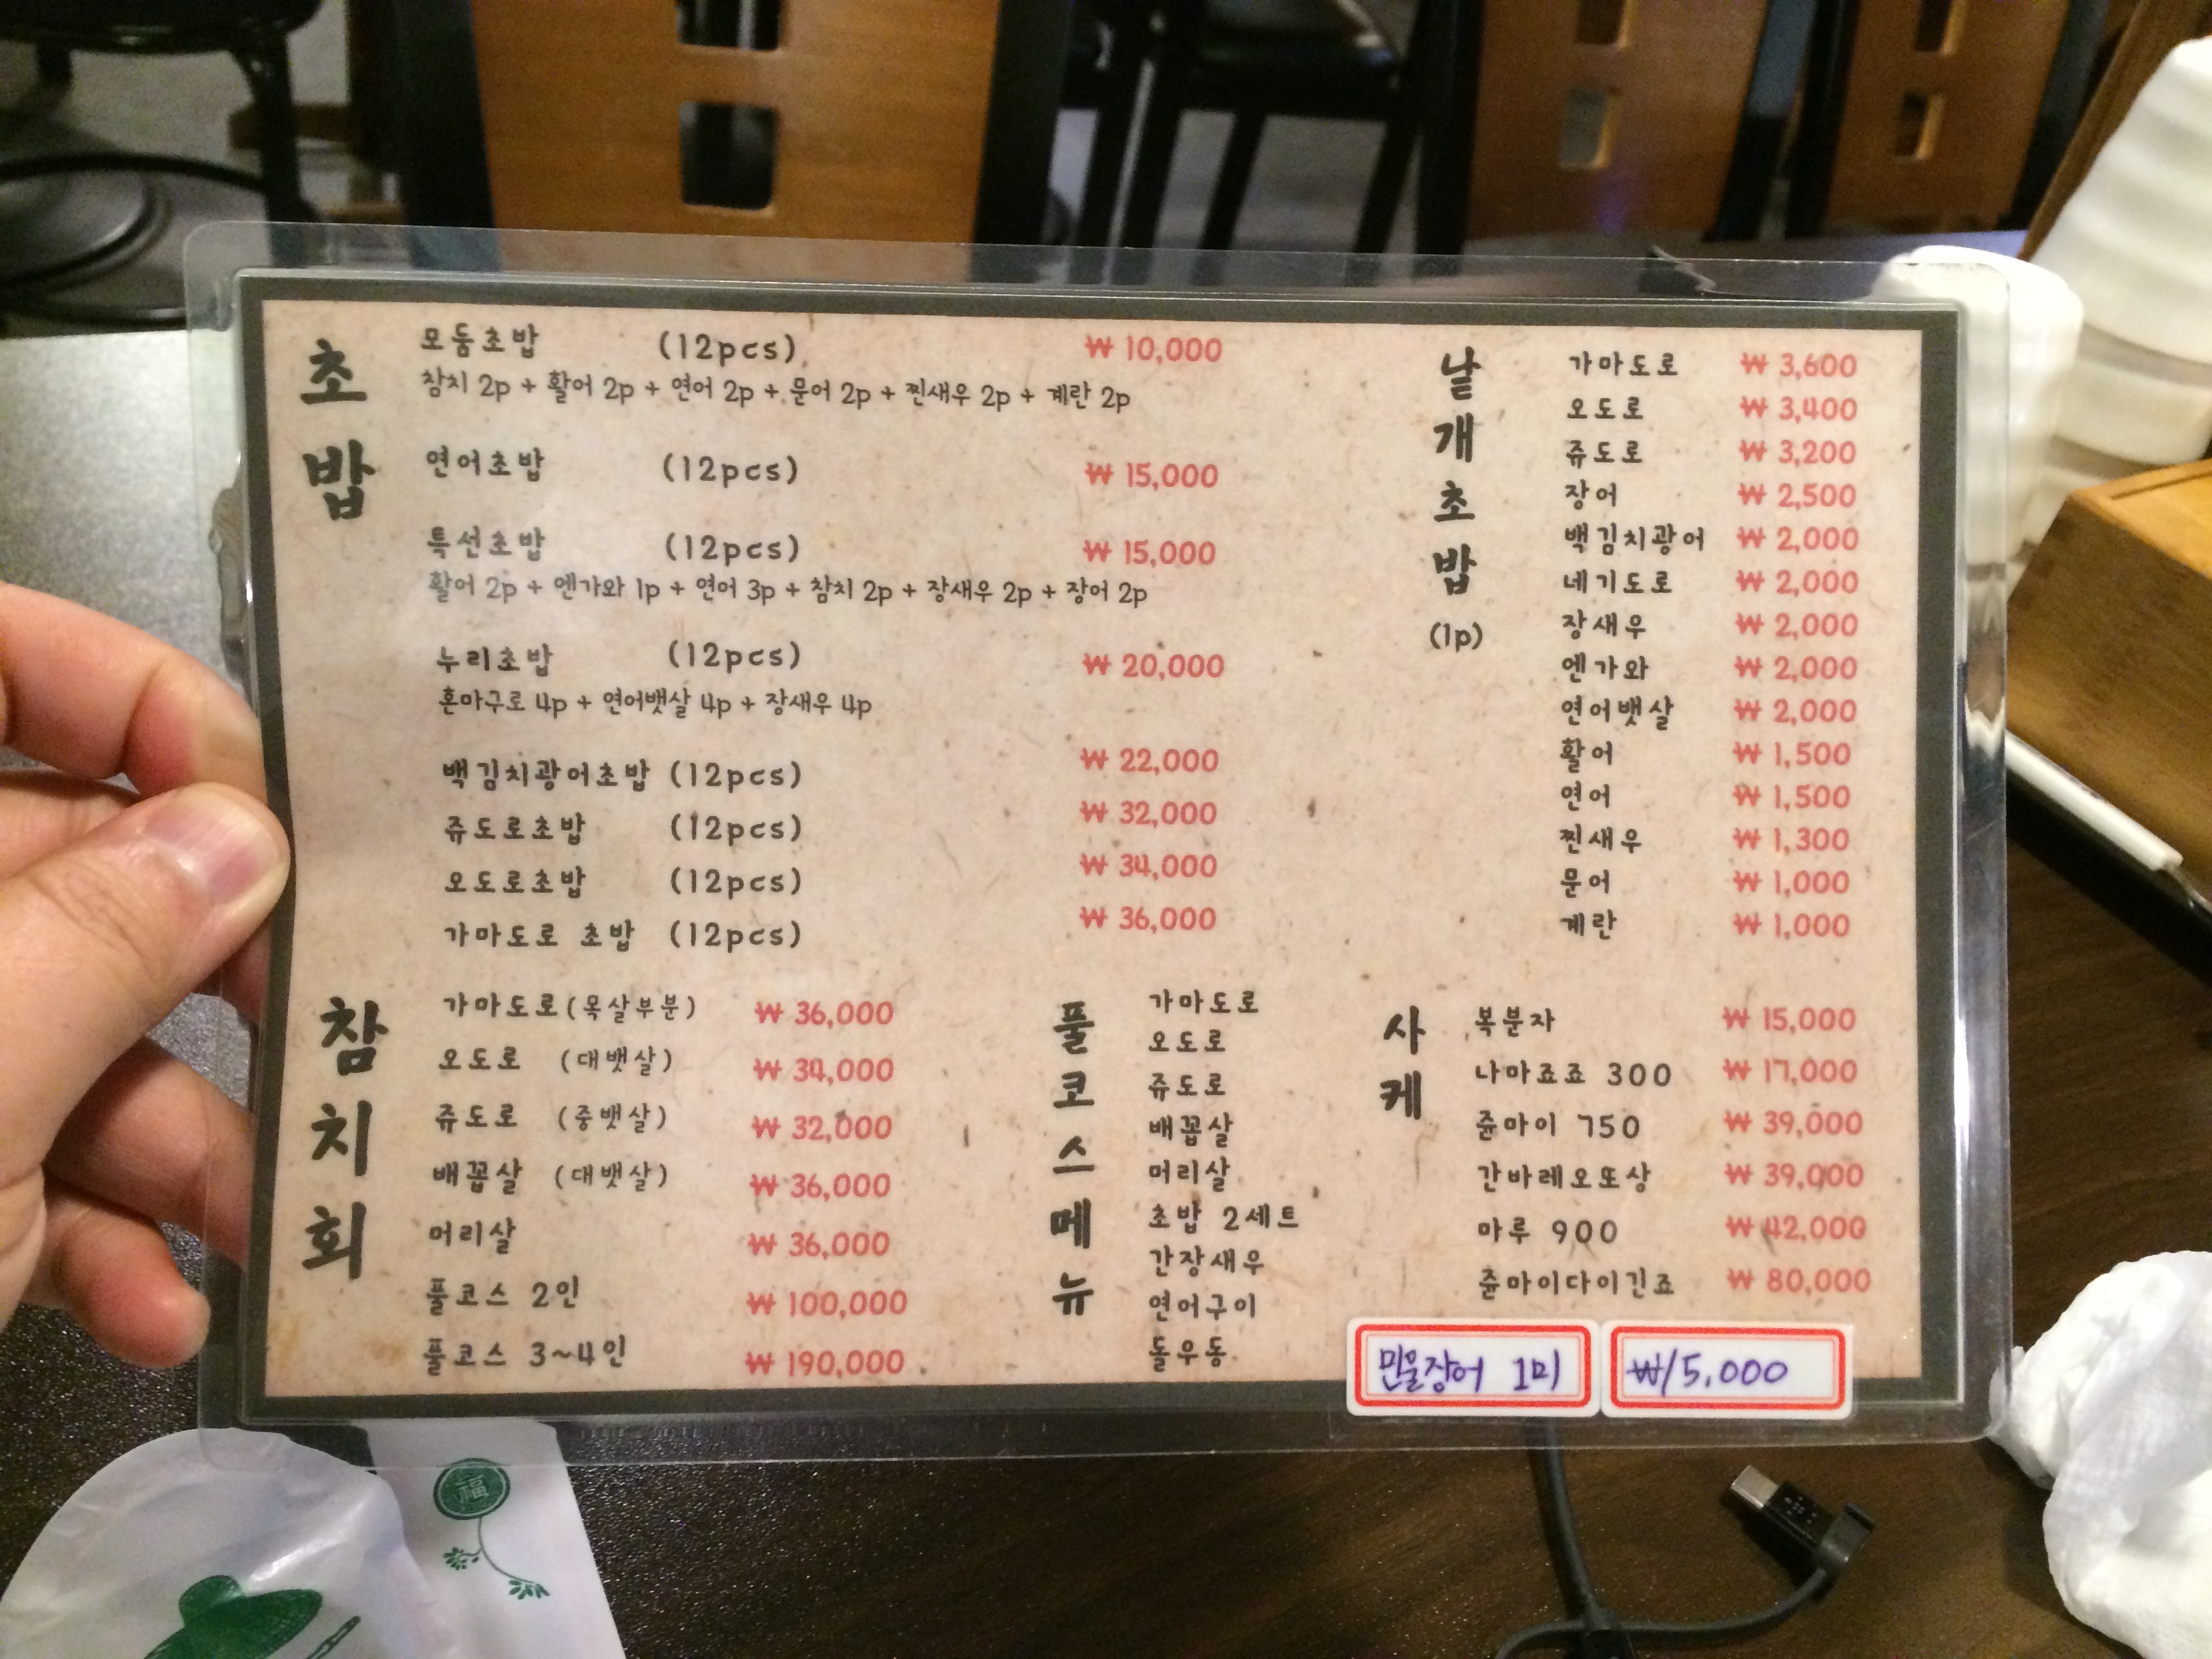 초밥
모둠초밥 (12pcs) ₩ 10,000
참치 2p + 활어 2p + 연어 2p + 문어 2p + 찐새우 2p + 계란 2p
연어초밥 (12pcs) ₩ 15,000
특선초밥 (12pcs) ₩ 15,000
활어 2p + 엔가와 1p + 연어 3p + 참치 2p + 장새우 2p + 장어 2p
누리초밥 (12pcs) ₩ 20,000
혼마구로 4p + 연어뱃살 4p + 장새우 4p
백김치광어초밥 (12pcs) ₩ 22,000
쥬도로초밥 (12pcs) ₩ 32,000
오도로초밥 (12pcs) ₩ 34,000
가마도로 초밥 (12pcs) ₩ 36,000
낱개초밥
(1p)
가마도로 ₩ 3,600
오도로 ₩ 3,400
쥬도로 ₩ 3,200
장어 ₩ 2,500
백김치광어 ₩ 2,000
네기도로 ₩ 2,000
장새우 ₩ 2,000
엔가와 ₩ 2,000
연어뱃살 ₩ 2,000
활어 ₩ 1,500
연어 ₩ 1,500
찐새우 ₩ 1,300
문어 ₩ 1,000
계란 ₩ 1,000
참치회
가마도로(목살부분) ₩ 36,000
오도로 (대뱃살) ₩ 34,000
쥬도로 (중뱃살) ₩ 32,000
배꼽살 (대뱃살) ₩ 36,000
머리살 ₩ 36,000
풀코스 2인 ₩ 100,000
풀코스 3~4인 ₩ 190,000
풀코스메뉴
가마도로
오도로
쥬도로
배꼽살
머리살
초밥 2세트
간장새우
연어구이
돌우동
사케
복분자 ₩ 15,000
나마죠죠 300 ₩ 17,000
쥰마이 750 ₩ 39,000
간바레오또상 ₩ 39,000
마루 900 ₩ 42,000
쥰마이다이긴죠 ₩ 80,000
민물장어 1미 ₩15,000
福